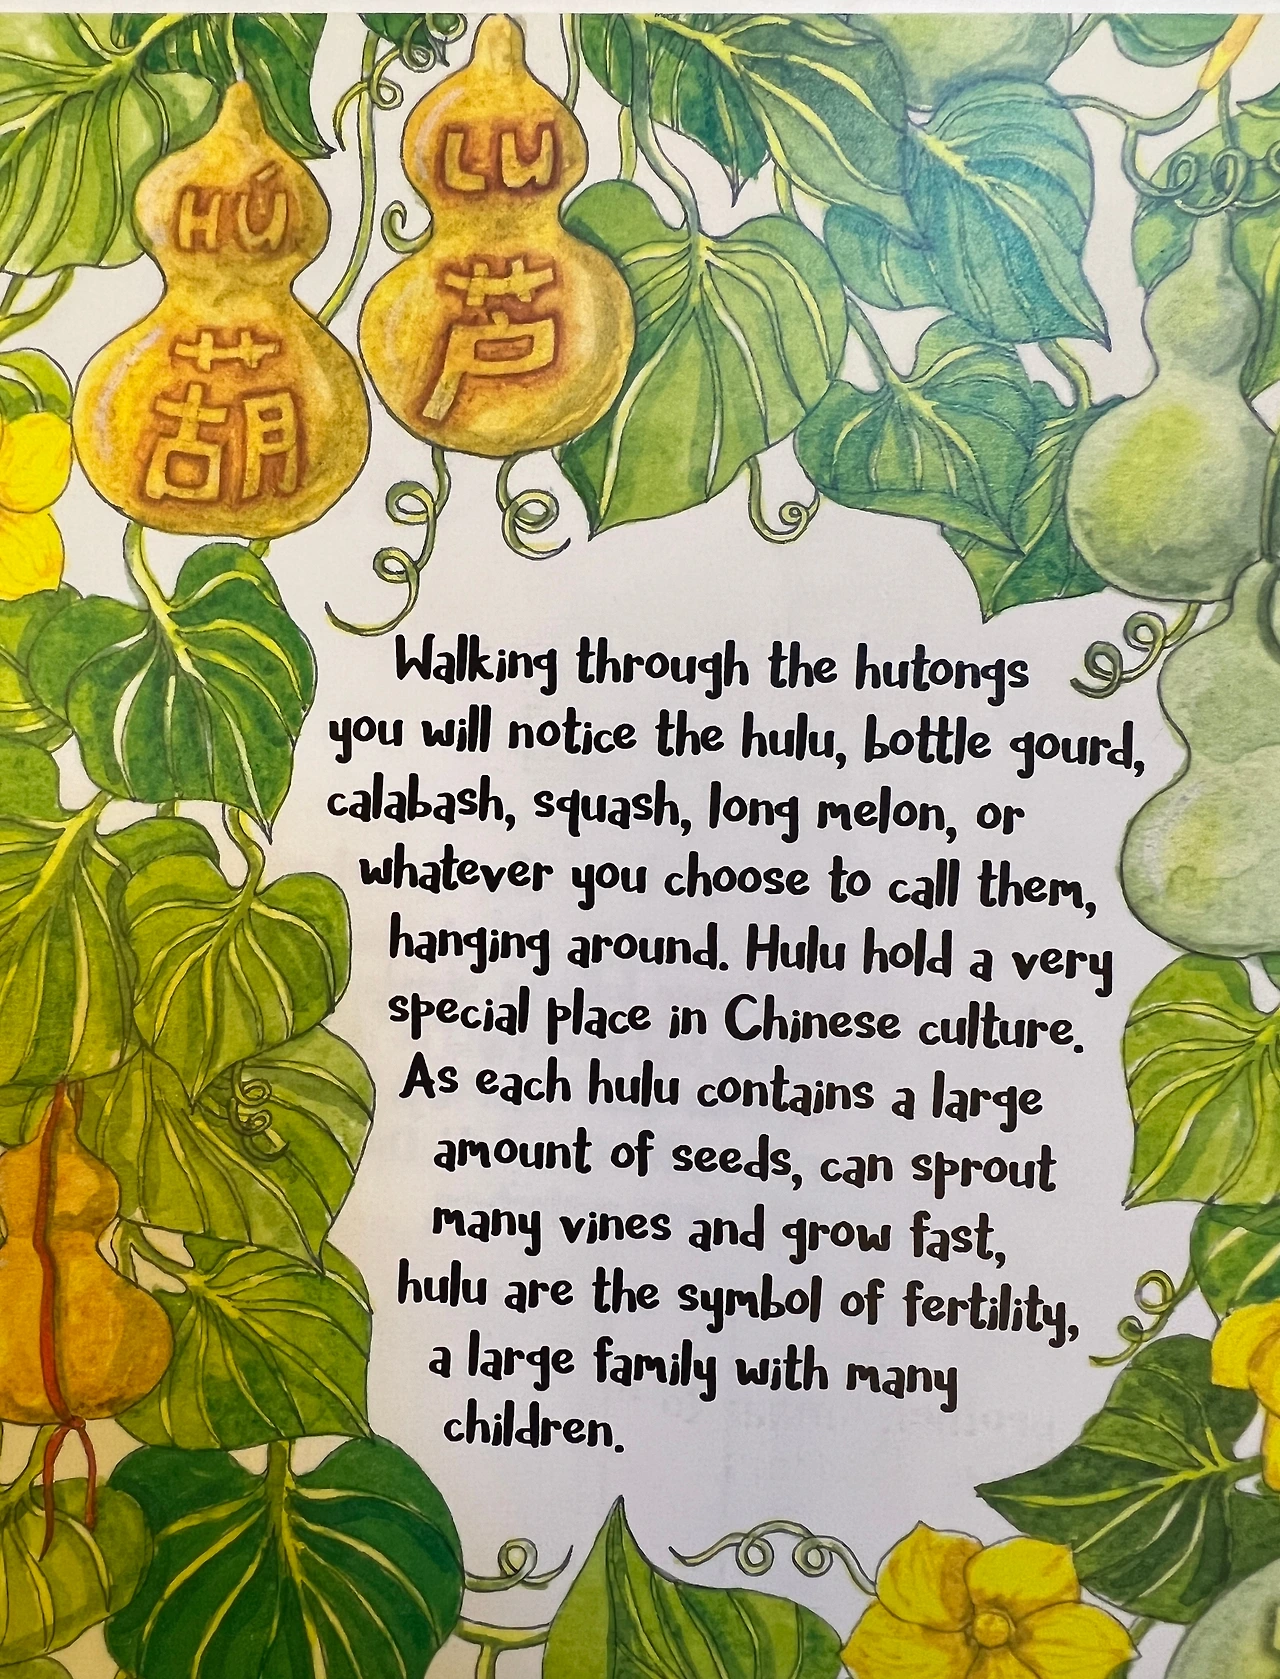 HÚ
葫
LU
芦
Walking through the hutongs
you will notice the hulu, bottle gourd,
calabash, squash, long melon, or
whatever you choose to call them,
hanging around. Hulu hold a very
special place in Chinese culture.
As each hulu contains a large
amount of seeds, can sprout
many vines and grow fast,
hulu are the symbol of fertility,
a large family with many
children.